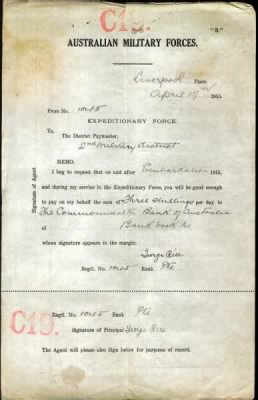 C19.
"B."
AUSTRALIAN MILITARY FORCES.
Liverpool Place.
April 19th 1915.
From No. 1085
EXPEDITIONARY FORCE.
To
The District Paymaster,
2nd Military District
MEMO.
I beg to request that on and after Embarkation 1915,
and during my service in the Expeditionary Force, you will be good enough
to pay on my behalf the sum of Three shillings per day to
The Commonwealth Bank of Australia
of Bank book No
whose signature appears in the margin.
Signature of Agent
George
Regtl. No. 1085 Rank. Pte
Regtl. No. 1085 Rank Pte
C19.
Signature of Principal George
The Agent will please also Sign below for purposes of record.